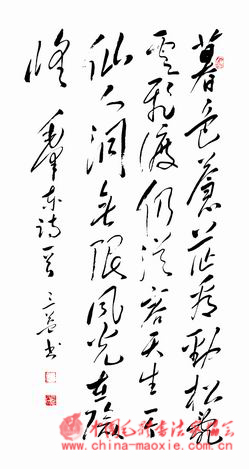 暮色蒼茫看勁松亂
雲飛渡仍從容天生一个
仙人洞無限風光在險
峰 毛澤東詩一首 書
www.china-maoxie.com